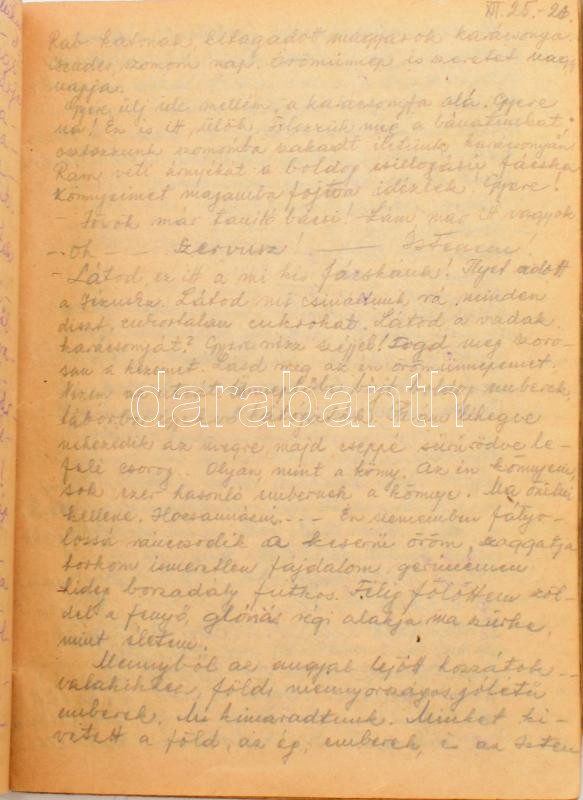 XII. 25.-26.
Rab katonák, kitagadott magyarok karácsonya.
Csendes, szomorú nap. Örömünnep is szeretet nagy
napja.
Gyere ülj ide mellém, a karácsonyfa alá. Gyere
na! Én is itt ülök, bánatunkat
osszunk szomorúba szakadt életünk karácsonyán
Rám veti árnyékát a boldog csillogású fácska
Könnyeimet magamba fojtva idézlek. Gyere!
- Jövök már bácsi! Lám már itt vagyok
- Oh Szervusz! Istenem!
- Látod ez itt a mi kis fácskánk! Ilyet adott
a Jézuska. Látod mit csináltunk rá, minden
diszt, cukortalan cukrokat. Látod a vadak
karácsonyját? Gyere nézz széjjel! Fogd meg szoro-
san a kezemet. Lásd meg az én örömünnepemet.
emberek,
darabanth
nehezedik az üvegre majd cseppé sűrűsödve le-
felé csorog.. Olyan, mint a könny. Az én könnyem,
sok ezer hasonló embernek a könnye. Ma örülni
kellene. Hozsannázni.--- Én szememben fátyo-
lossá ráncosodik a keserű öröm, szaggatja
torkom ismeretlen fájdalom, gerincemen
hideg borzadály futkos. Félig fölöttem zöl-
del a fenyő, glóriás régi alakja ma szürke,
mint életem.
Mennyből az angyal lejött hozzátok..
valakikhez, földi mennyországos jólétű
emberek. Mi kimaradtunk. Minket ki-
vetett a föld, az ég, emberek, is az Isten